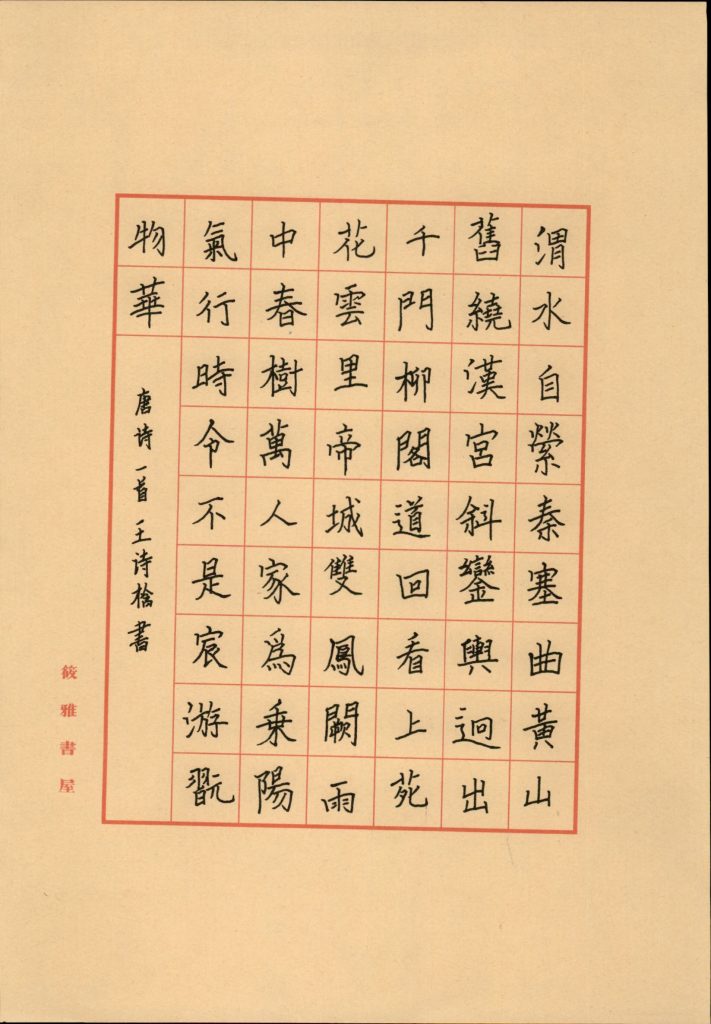 渭水自縈秦塞曲黃山
舊繞漢宮斜鑾輿迥出
千門柳閣道回看上苑
花雲里帝城雙鳳闕雨
中春樹萬人家爲乘陽
氣行時令不是宸游翫
物華
唐诗一首王诗書
筱雅書屋